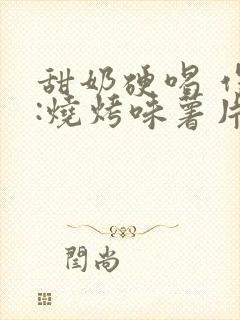 甜奶硬唱
:燒烤味薯片
閆尚